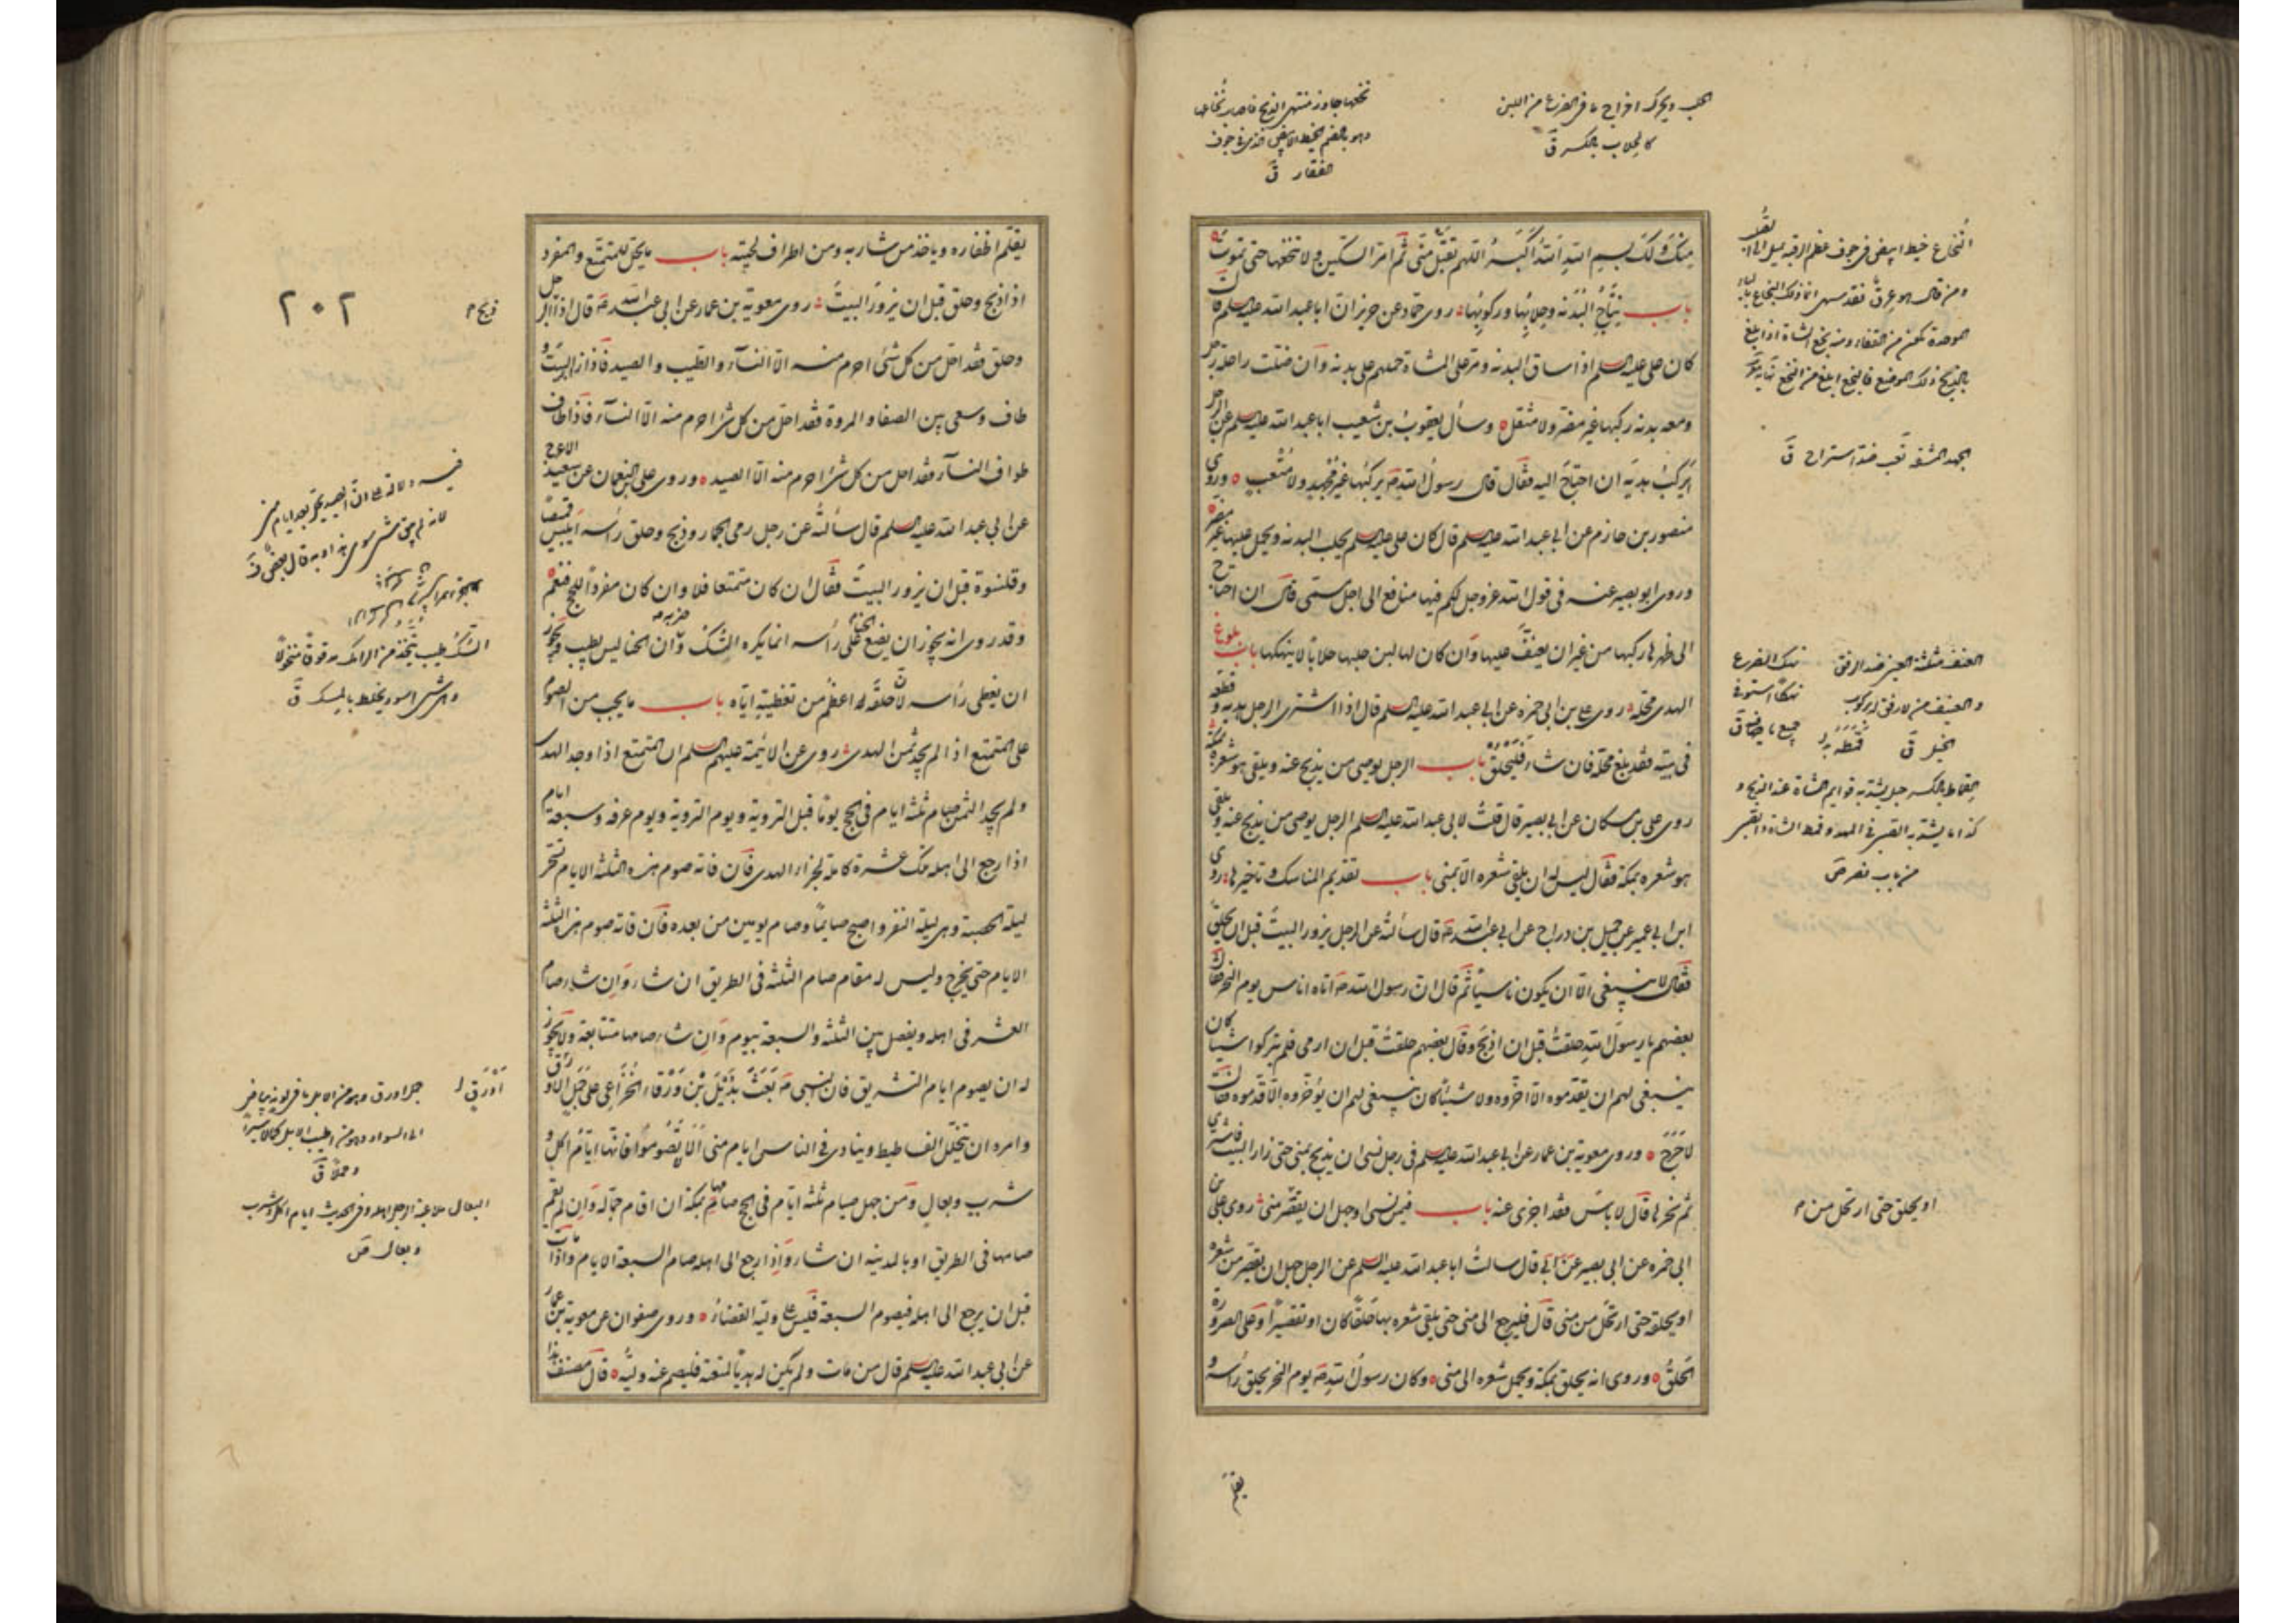 الحلب ويحرك اخراج ما في الضرع من اللبن
كالحلاب بالكسر ق
نخعها جاوز منتهى الذبح فاصاب نخاعها
وهو بالضم الخيط الابيض الذي في جوف
الفقار ق
منك ولك بسم الله الله اكبر اللهم تقبل مني ثم امر السكين ولا تنخعها حتى تموت
باب نتاج البدنه وحلابها وركوبها روى حماد عن حريز ان ابا عبد الله عليه السلم قال
كان علي عليه السلم اذا ساق البدنه ومر على المشاة حملهم على بدنه وان ضلت راحلة رجل
ومعه بدنه ركبها غير مضر ولا مثقل وسأل يعقوب بن شعيب ابا عبد الله عليه السلم عن الرجل
ايركب بدنة ان احتاج اليه فقال قال رسول الله ص يركبها غير مجهد ولا متعب وروى
منصور بن حازم عن ابي عبد الله عليه السلم قال كان علي عليه السلم يحلب البدنه ويحمل عليها غير مضر
وروى ابو بصير عنه في قول الله عز وجل لكم فيها منافع الى اجل مسمى قال ان احتاج
الى ظهرها ركبها من غير ان يعنف عليها وان كان لها لبن حلبها حلابا لا ينهكها باب بلوغ
الهدى محله روى علي بن ابي حمزه عن ابي عبد الله عليه السلم قال اذا اشترى الرجل بدنه وقطعه
في بيته فقد بلغ محله فان شاء فليحلق باب الرجل يوصي من يذبح عنه ويلقي هو شعره بمكة
روى علي بن مسكان عن ابي بصير قال قلت لابي عبد الله عليه السلم الرجل يوصى من يذبح عنه ويلقي
هو شعره بمكة فقال ليس له ان يلقي شعره الا بمنى باب تقديم المناسك وتاخيرها روى
ابن ابي عمير عن جميل بن دراج عن ابي عبد الله ع قال سألته عن الرجل يزور البيت قبل ان يحلق
فقال لا ينبغي الا ان يكون ناسيا ثم قال ان رسول الله ص اتاه اناس يوم النحر فقال
بعضهم يا رسول الله حلقت قبل ان اذبح وقال بعضهم حلقت قبل ان ارمي فلم يتركوا شيئا كان
ينبغي لهم ان يقدموه الا اخروه ولا شيئا كان ينبغي لهم ان يؤخروه الا قدموه فقال
لا حرج وروى معوية بن عمار عن ابي عبد الله عليه السلم في رجل نسي ان يذبح بمنى حتى زار البيت فاشترى
ثم نحرها قال لا باس قد اجزى عنه باب فيمن نسي او جهل ان يقصر من شعره روى علي بن
ابي حمزه عن ابي بصير قال سالت ابا عبد الله عليه السلم عن الرجل جهل ان يقصر من شعره
او يحلقه حتى ارتحل من منى قال فليرجع الى منى حتى يلقي شعره بها حلقا كان او تقصيرا وعلى الصرورة
الحلق وروى انه يحلق بمكة ويحمل شعره الى منى وكان رسول الله ص يوم النحر يحلق رأسه و
يقلم
النخاع خيط ابيض في جوف عظم الرقبة
العنف مثلثة العين ضد الرفق
الجهد المشقة تعب ضد استراح ق
القماط بالكسر حبل يشد به قوايم الشاة عند الذبح و
كذا ما يشد به الصبي في المهد وقمط الشاة والصبي
من باب نصر ص
او يحلق حتى ارتحل من م
٢٠٢
يقلم اظفاره وياخذ من شاربه ومن اطراف لحيته باب ما يحل للمتمتع والمفرد
اذا ذبح وحلق قبل ان يزور البيت روى معوية بن عمار عن ابي عبد الله ع قال اذا ذبح الرجل
وحلق فقد احل من كل شئ احرم منه الا النساء والطيب والصيد فاذا زار البيت و
طاف وسعى بين الصفا والمروة فقد احل من كل شئ احرم منه الا النساء فاذا طاف
طواف النساء فقد احل من كل شئ احرم منه الا الصيد وروى علي بن النعمان عن سعيد الاعرج
عن ابي عبد الله عليه السلم قال سألته عن رجل رمى الجمار وذبح وحلق رأسه ايلبس قميصا
وقلنسوة قبل ان يزور البيت فقال ان كان متمتعا فلا وان كان مفردا للحج فنعم
وقد روى انه يجوز ان يضع الحناء على رأسه انما يكره السك وضربه وان الحنا ليس بطيب ويجوز
ان يغطى رأسه لان حلقه له اعظم من تغطيته اياه باب ما يجب من الصوم
على المتمتع اذا لم يجد ثمن الهدى روى عن الائمة عليهم السلم ان المتمتع اذا وجد الهدى
ولم يجد الثمن صام ثلثة ايام في الحج يوما قبل التروية ويوم التروية ويوم عرفه وسبعة ايام
اذا رجع الى اهله تلك عشرة كاملة لجزاء الهدى فان فاته صوم هذه الثلثة الايام تسحر
ليلة الحصبة وهي ليلة النفر واصبح صايما وصام يومين من بعده فان فاته صوم هذه الثلثة
الايام حتى يخرج وليس له مقام صام الثلثة في الطريق ان شاء وان شاء صام
العشر في اهله ويفصل بين الثلثة والسبعة بيوم وان شاء صامها متتابعة ولا يجوز
له ان يصوم ايام التشريق فان النبي ص بعث بديل بن ورقاء الخزاعي على جمل اورق
وامره ان يتخلل الفساطيط وينادى في الناس ايام منى الا لا تصوموا فانها ايام اكل و
شرب وبعال ومن جهل صيام ثلثة ايام في الحج صامها بمكة ان اقام جماله وان لم يقم
صامها في الطريق او بالمدينه ان شاء واذا رجع الى اهله صام السبعة الايام واذا مات
قبل ان يرجع الى اهله فيصوم السبعة فليس على وليه القضاء وروى صفوان عن معوية بن عمار
عن ابي عبد الله عليه السلم قال من مات ولم يكن له هدى لمتعته فليصم عنه وليه قال مصنف هذا
السك طيب يتخذ من الرامك
جمل اورق وهو من الابل ما في لونه بياض
الى السواد وهو من اطيب الابل لحما لا سيرا
وعملا ق
البعال ملاعبة الرجل اهله وفي الحديث ايام اكل وشرب
وبعال ص